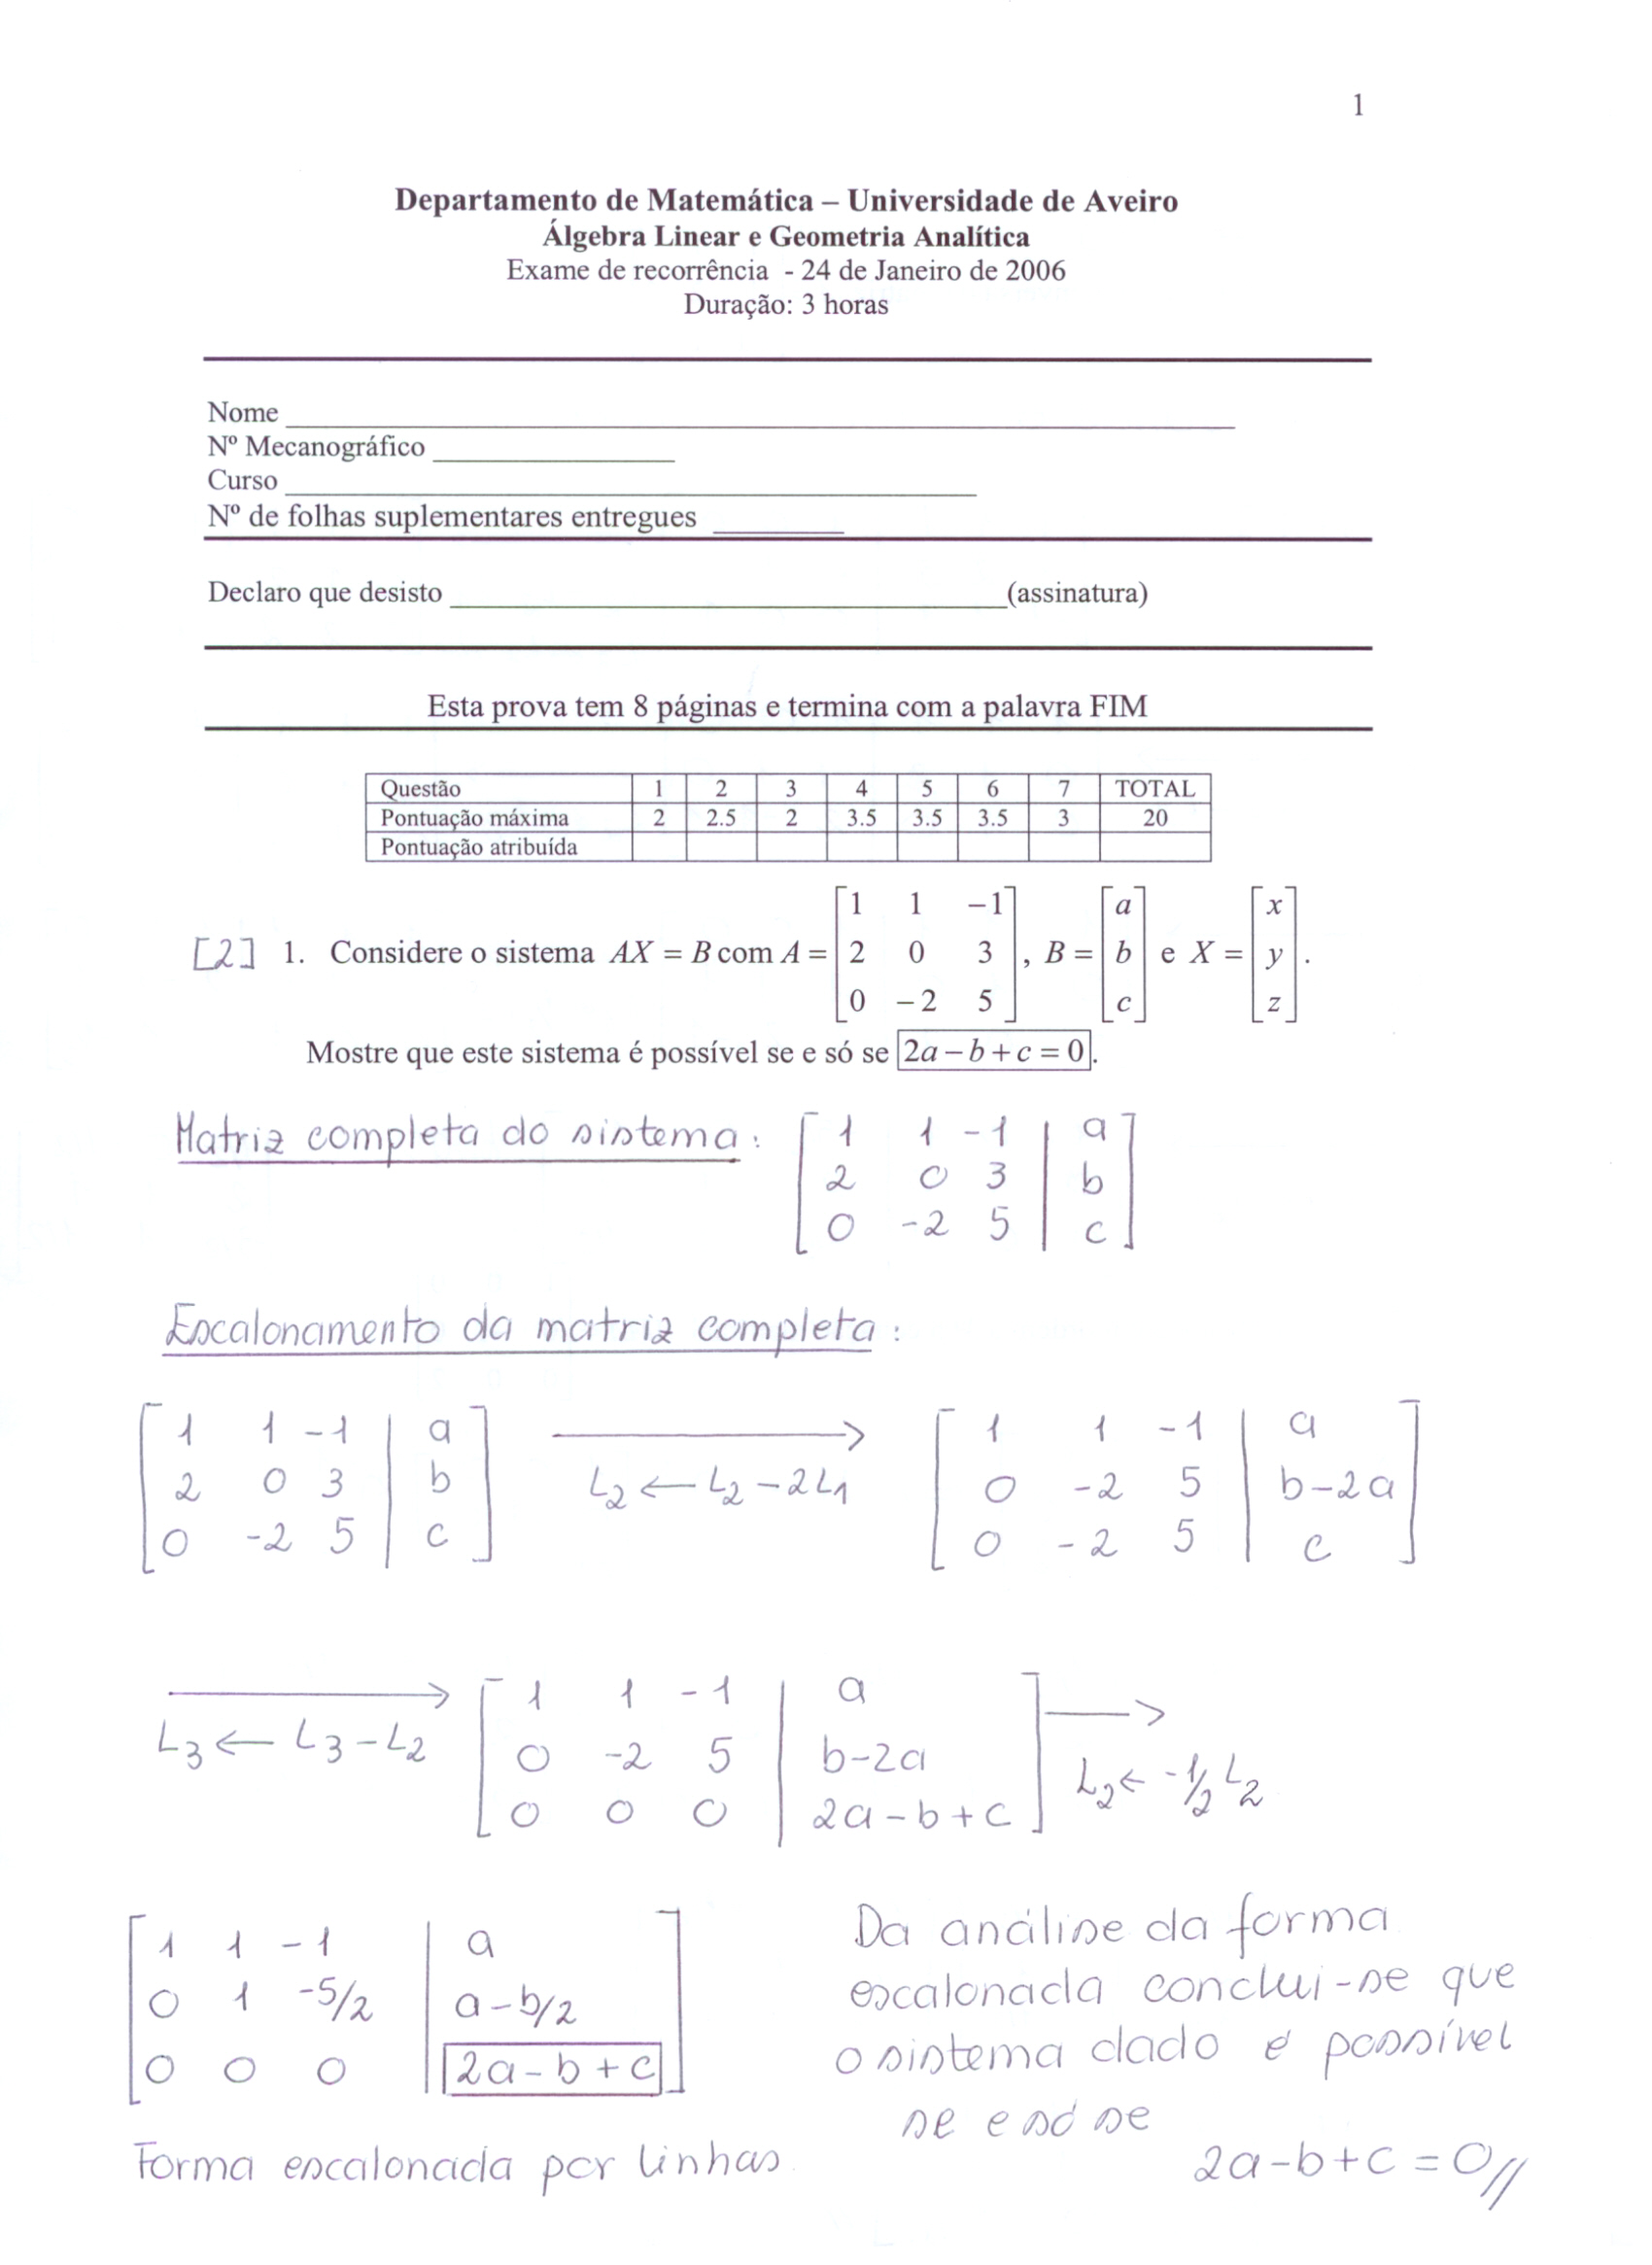 1
Departamento de Matemática – Universidade de Aveiro
Álgebra Linear e Geometria Analítica
Exame de recorrência - 24 de Janeiro de 2006
Duração: 3 horas
Nome
Nº Mecanográfico
Curso
Nº de folhas suplementares entregues
Declaro que desisto (assinatura)
Esta prova tem 8 páginas e termina com a palavra FIM
Questão 1 2 3 4 5 6 7 TOTAL
Pontuação máxima 2 2.5 2 3.5 3.5 3.5 3 20
Pontuação atribuída
1 1 −1 a x
[2] 1. Considere o sistema AX = B com A = 2 0 3 , B = b e X = y .
0 −2 5 c z
Mostre que este sistema é possível se e só se 2a − b + c = 0.
Matriz completa do sistema: 1 1 -1 | a
2 0 3 | b
0 -2 5 | c
Escalonamento da matriz completa:
1 1 -1 | a → 1 1 -1 | a
2 0 3 | b L2 ← L2 - 2L1 0 -2 5 | b-2a
0 -2 5 | c 0 -2 5 | c
→ 1 1 -1 | a →
L3 ← L3 - L2 0 -2 5 | b-2a L2 ← -1/2 L2
0 0 0 | 2a-b+c
1 1 -1 | a
0 1 -5/2 | a-b/2
0 0 0 | 2a-b+c
Forma escalonada por linhas
Da análise da forma
escalonada conclui-se que
o sistema dado é possível
se e só se
2a-b+c = 0//